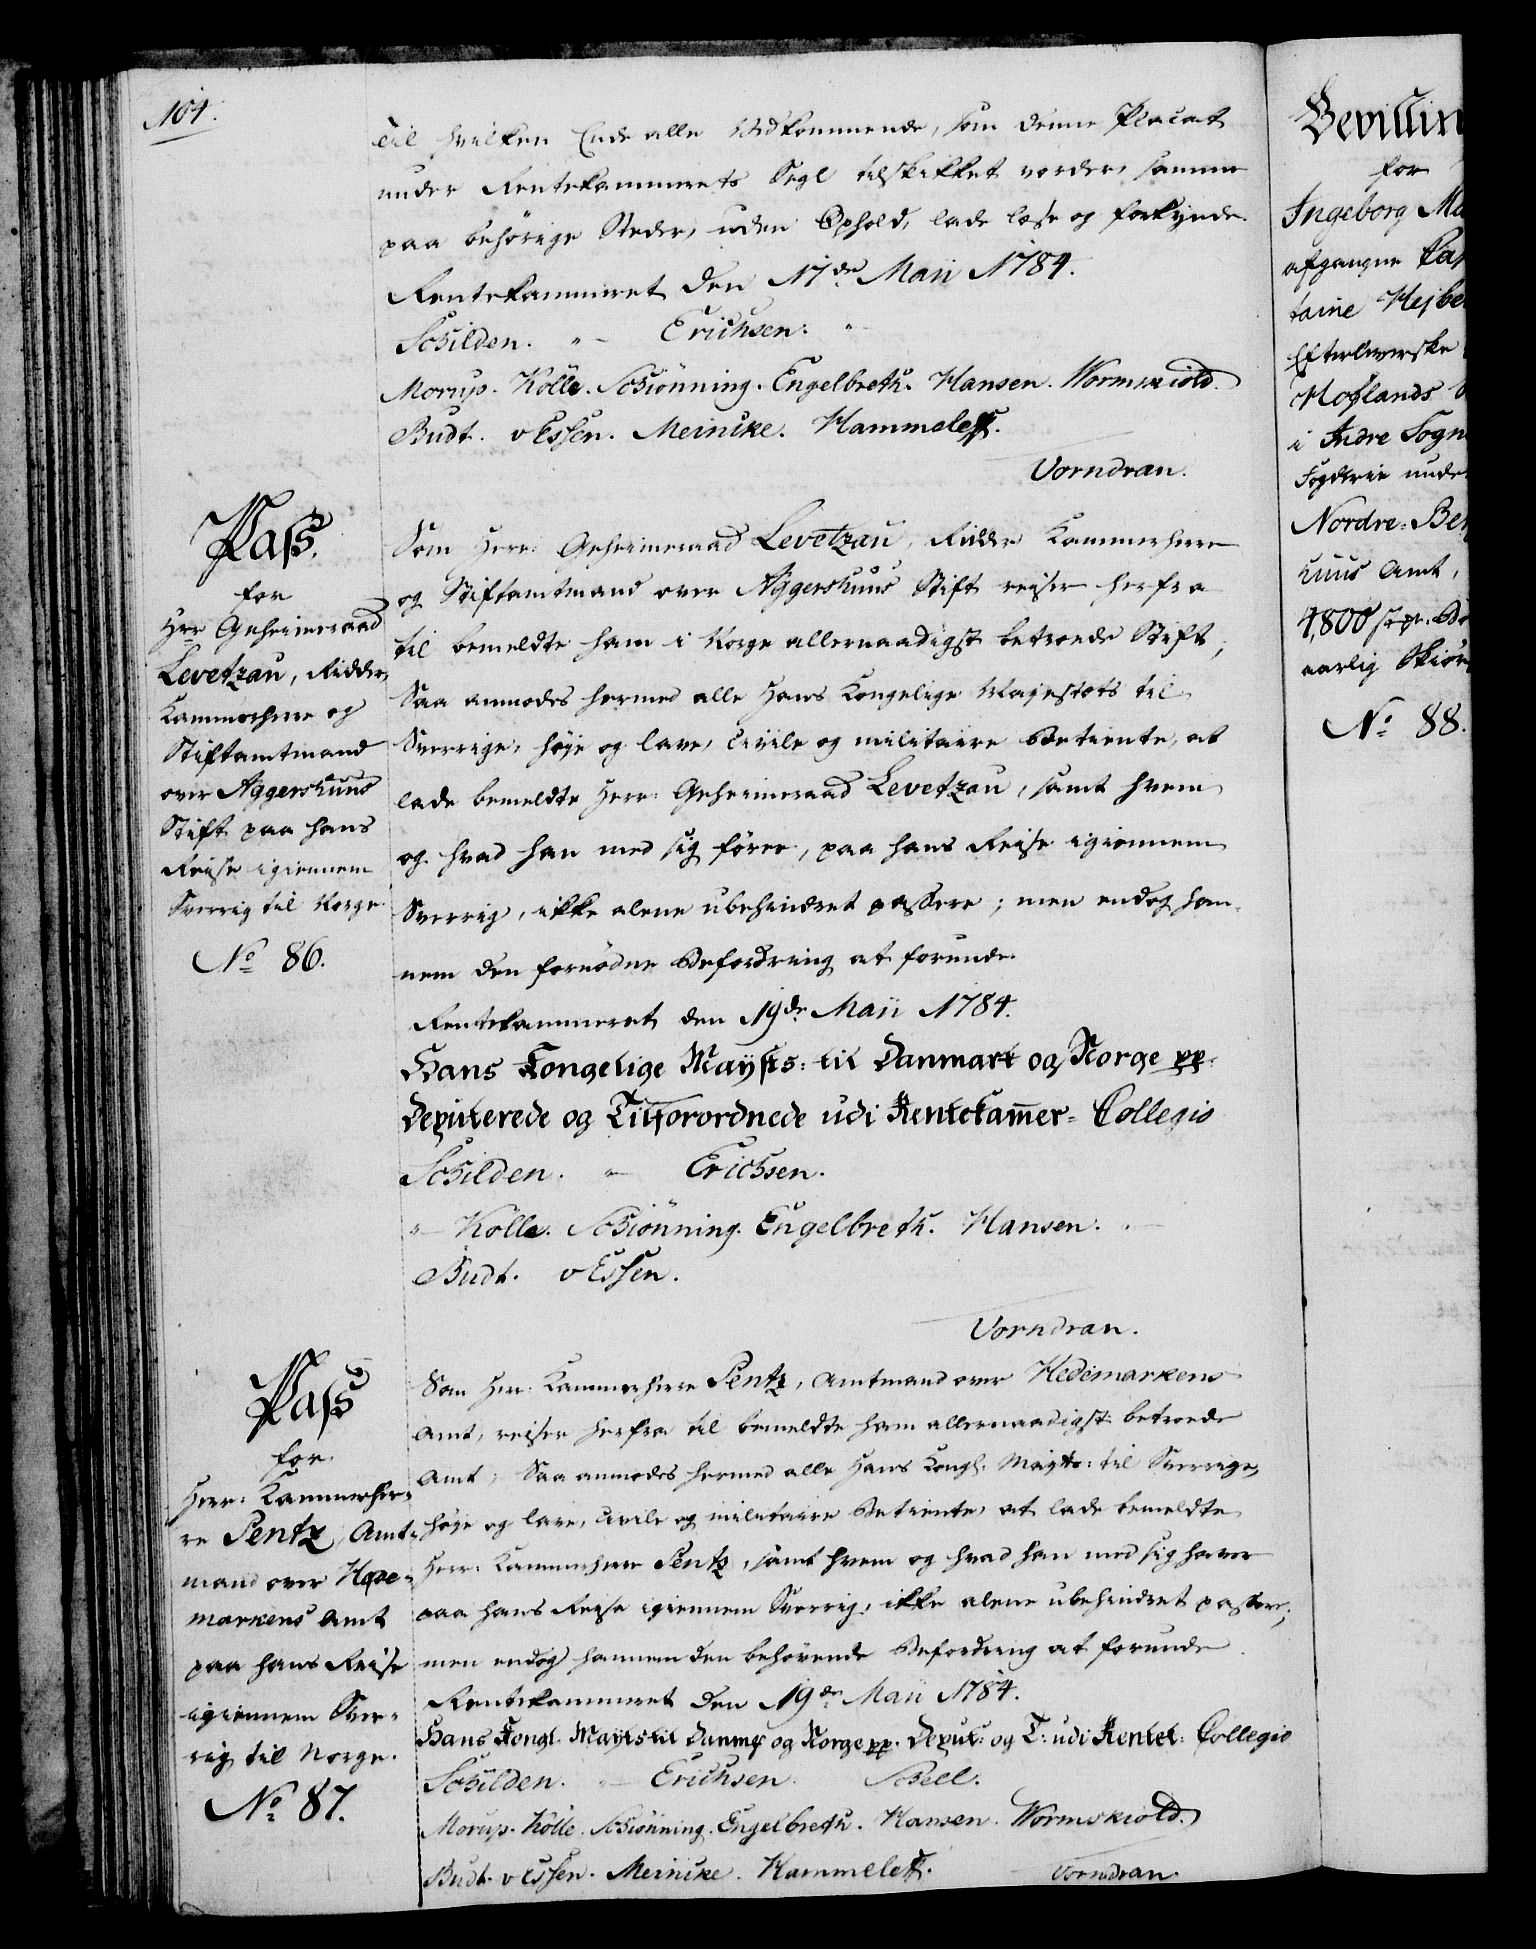 104.
til hvilken Ende alle Vedkommende, som denne Placat
under Rentekammerets Segl tilskikket vorder, samme
paa behörige Steder, uden Ophold, lade læse og forkynde.
Rentekammeret den 17de Maii 1784.
Schilden. " – Erichsen. "
Morup. Kölle. Schiönning. Engelbreth. Hansen. Wormskiold.
Budt. v Essen. Meincke. Hammeleff.
Vorndran.
Pass.
for
Herr Geheimeraad
Levetzau, Ridder,
Kammerherre og
Stiftamtmand
over Aggershuus
Stift paa hans
Reise igiennem
Sverrig til Norge
No 86.
Som Herr Geheimeraad Levetzau, Ridder Kammerherre
og Stiftamtmand over Aggershuus Stift reiser herfra
til bemeldte ham i Norge allernaadigst betroede Stift;
Saa anmodes hermed alle Hans Kongelige Majestæts til
Sverrige, höje og lave, civile og militaire Betiente, at
lade bemeldte Herr Geheimeraad Levetzau, samt hvem
og hvad han med sig förer, paa hans Reise igiennem
Sverrig, ikke alene ubehindret passere; men endog han-
nem den fornödne Befordring at forunde.
Rentekammeret den 19de Maii 1784.
Hans Kongelige Maysts: til Danmark og Norge pp.
Deputerede og Tilforordnede udi Rentekamer= Collegio
Schilden. " – Erichsen.
" – Kölle. Schiönning. Engelbreth. Hansen. " –
Budt. v Essen.
Vorndran.
Pass
for
Herr: Kammerher=
re Pentz, Amt=
mand over Hede=
markens Amt
paa hans Reise
igiennem Sver=
rig til Norge.
No 87.
Som Herr: Kammerherre Pentz, Amtmand over Hedemarkens
Amt, reiser herfra til bemeldte ham allernaadigst betroede
Amt; Saa anmodes hermed alle Hans Kongl: Mayts: til Sverrige,
höje og lave, civile og militaire Betiente, at lade bemeldte
Herr: Kammerherre Pentz, samt hvem og hvad han med sig haver
paa hans Reise igiennem Sverrig, ikke alene ubehindret passere;
men endog hannem den behövende Befordring at forunde
Rentekammeret den 19de Maii 1784.
Hans Kongl. Mayts til Danmk og Norge pp. Deput: og T: udi Rentek: Collegio
Schilden. " – Erichsen. Scheel.
Morup. Kölle. Schiönning. Engelbreth. Hansen. Wormskiold.
Budt. v Essen. Meincke. Hammeleff. Vorndran.
Bevillin
for
Ingeborg Ma
afgangne Cap
taine Hejbe
Efterleverske
Hoflands
i Indre Sogn
Fogderie unde
Nordre=Ber
huus Amt,
4,800
aarlig Skiör
No 88.